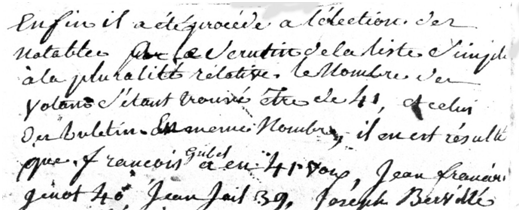 Enfin il a été procédé a lélection des
notables par le Scrutin de la liste Simple
à la pluralité rélative. le Nombre des
votans s'étant trouvé être de 41, et celui
des buletin En meme Nombre, il en est résulté
que francois Gubet a eu 41 voix, Jean francois
ginot 40, Jean Jail 39, Joseph Berville